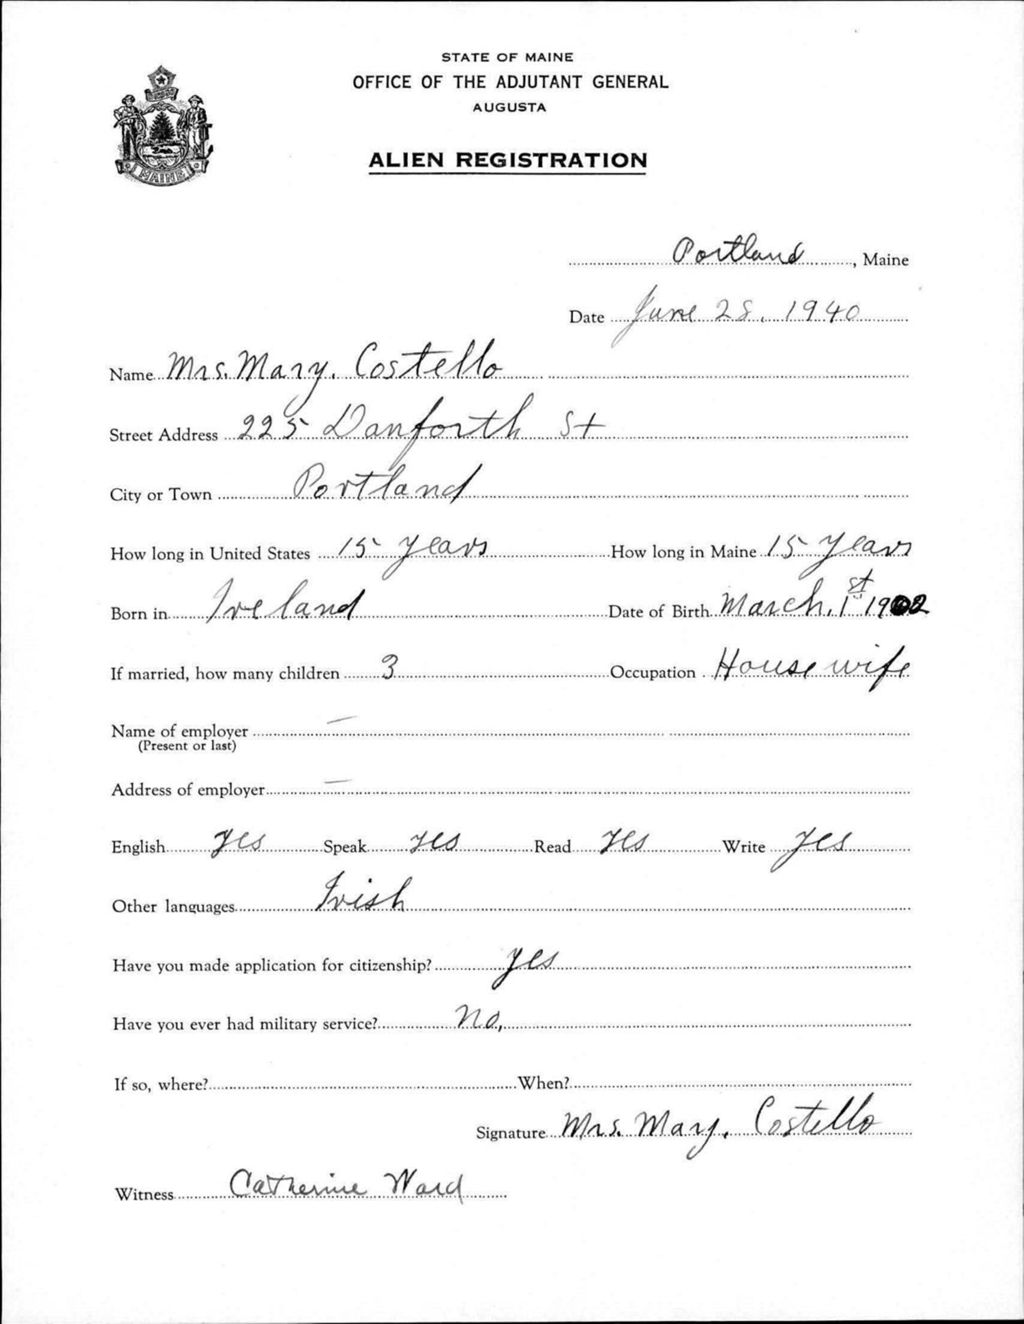 STATE OF MAINE
OFFICE OF THE ADJUTANT GENERAL
AUGUSTA
MAINE
ALIEN REGISTRATION
Portland, Maine
Date June 28, 1940
Name Mrs. Mary. Costello
Street Address 225 Danforth St
City or Town Portland
How long in United States 15 years How long in Maine 15 years
Born in Ireland Date of Birth March. 1st 1902
If married, how many children 3 Occupation House wife
Name of employer —
(Present or last)
Address of employer —
English yes Speak yes Read yes Write yes
Other languages Irish
Have you made application for citizenship? yes
Have you ever had military service? No.
If so, where? When?
Signature Mrs. Mary. Costello
Witness Catherine Ward